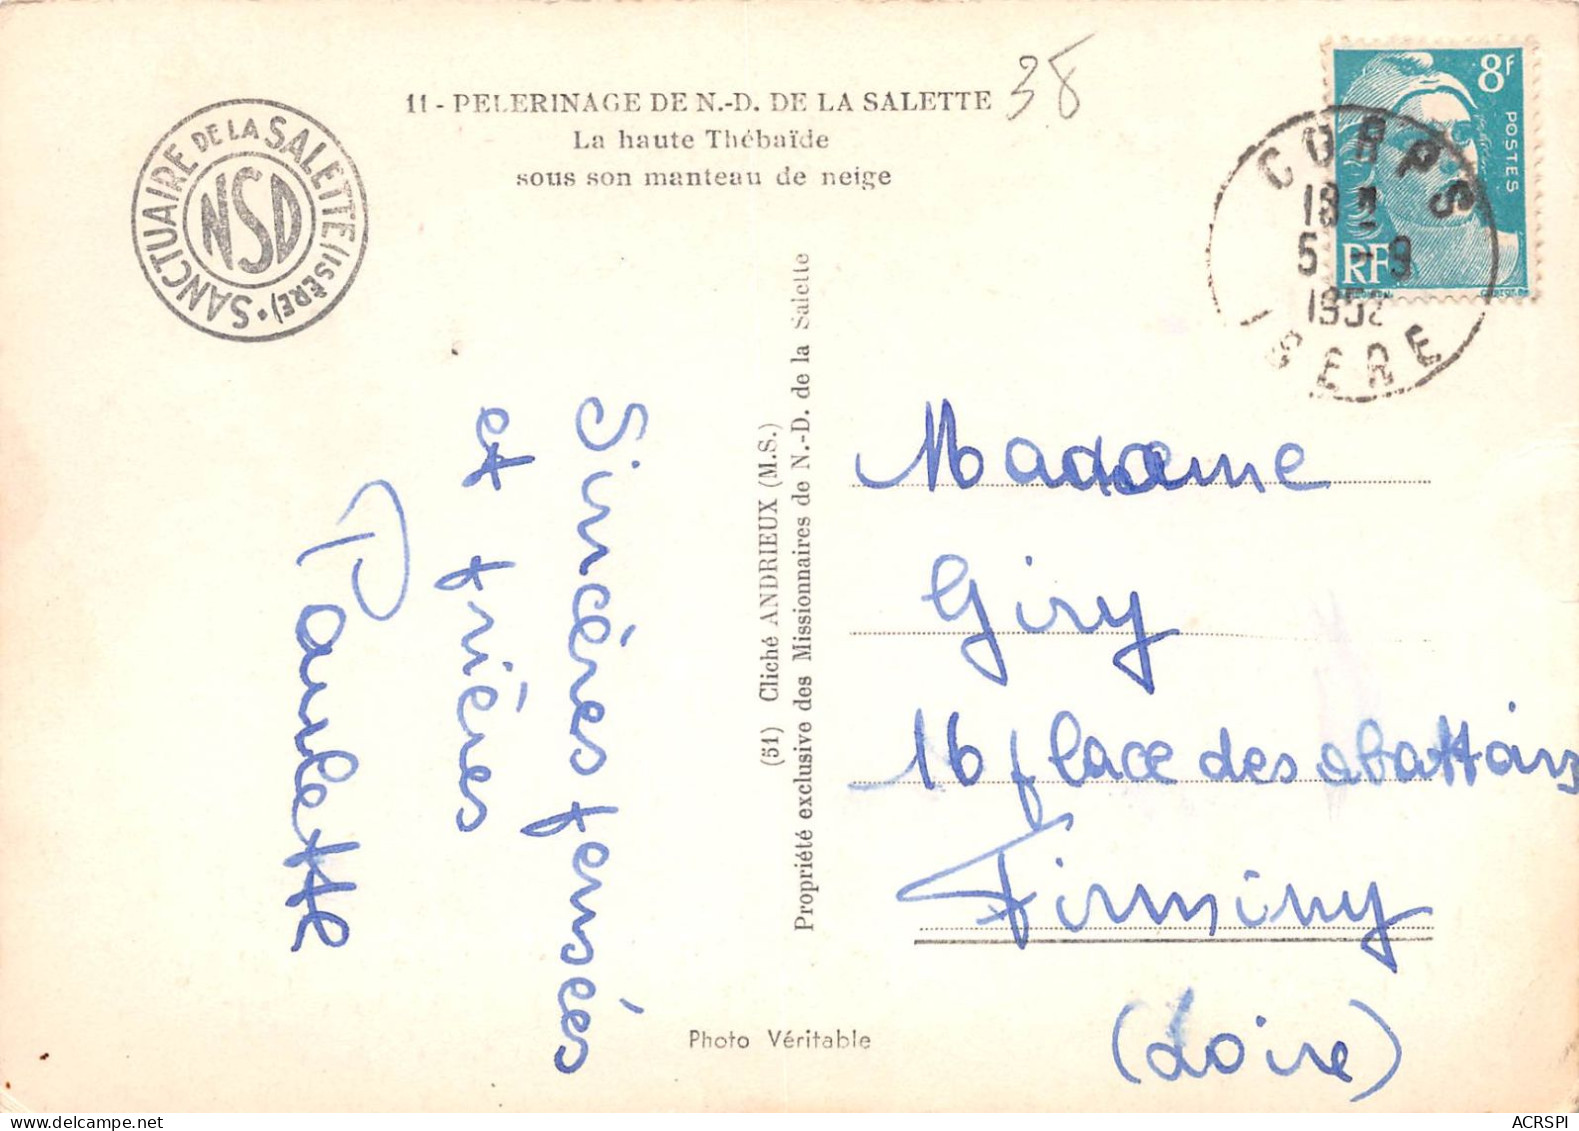 11 - PELERINAGE DE N.-D. DE LA SALETTE
La haute Thébaïde
sous son manteau de neige
38
SANCTUAIRE DE LA SALETTE (ISÈRE) •
NSD
8F
POSTES
RF
CORPS
5 - 9
1952
ISERE
Sincères pensées
et prières
Paulette
(51) Cliché ANDRIEUX (M.S.)
Propriété exclusive des Missionnaires de N.-D. de la Salette
Madame
Giry
16 place des abattoirs
Firminy
(Loire)
Photo Véritable
ACRSPI